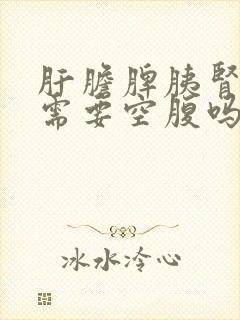 肝膽脾胰腎
需要空腹嗎
冰水冷心